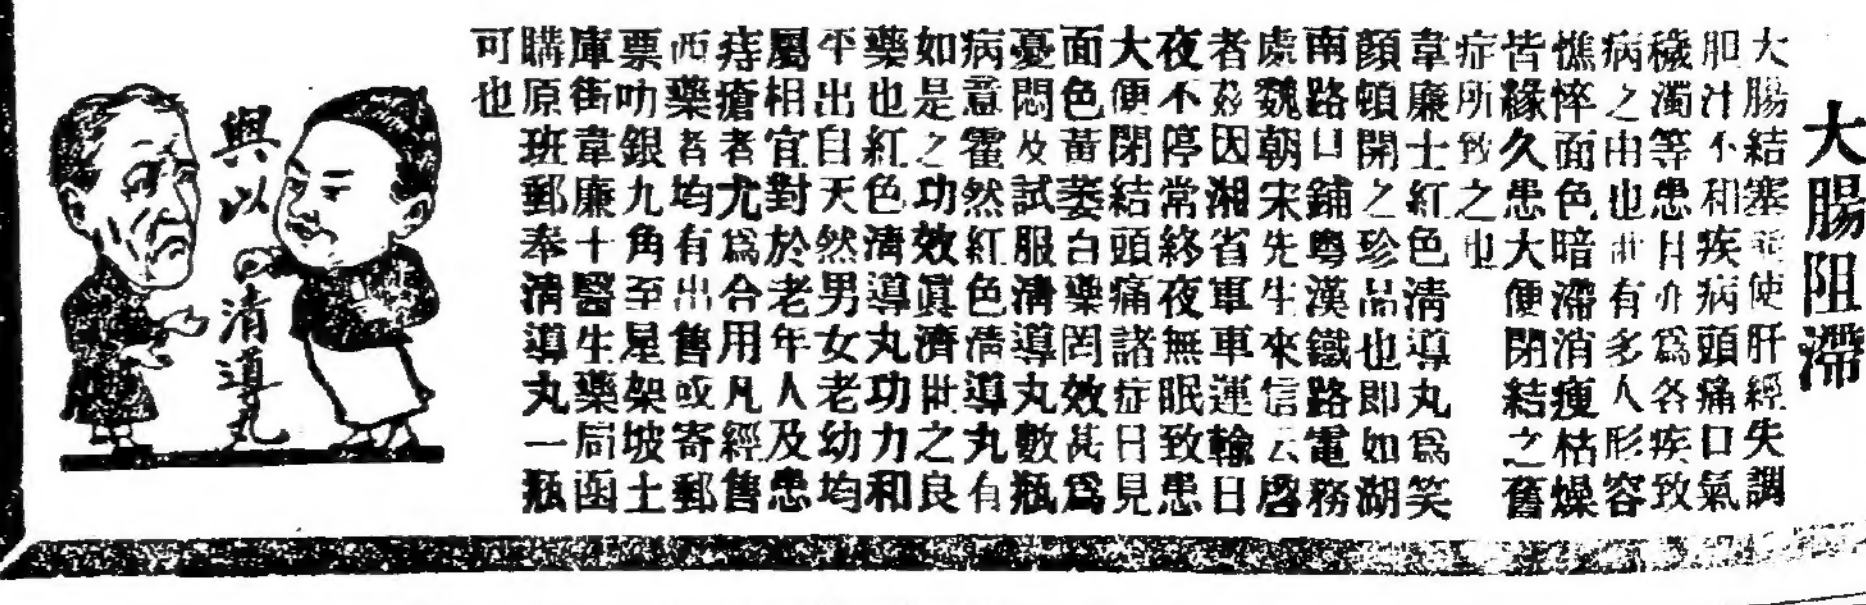 大腸阻滯
大腸結塞致使肝經失調
胆汁不和疾病頭痛口氣
穢濁等患日亦爲各疾致
病之由也此有多人形容
憔悴面色暗滯消瘦枯燥
皆緣久患大便閉結之舊
症所致之也
韋廉士紅色清導丸爲笑
顏頓開之珍品也即如湖
南路口鋪粵漢鐵路電務
處魏朝宋先生來信云啓
者茲因湘省軍車運輸日
夜不停常終夜無眠致患
大便閉結頭痛諸症日見
面色黃萎白藥罔效甚爲
憂悶及試服清導丸數瓶
病意霍然紅色清導丸有
如是之功效眞濟世之良
藥也紅色清導丸功力和
平出自天然男女老幼均
屬相宜對於老年人及患
痔瘡者尤爲合用凡經售
西藥者均有出售或寄郵
票叻銀九角至星架坡土
庫街韋廉士醫生藥局函
購原班郵奉清導丸一瓶
可也
與以
清導丸